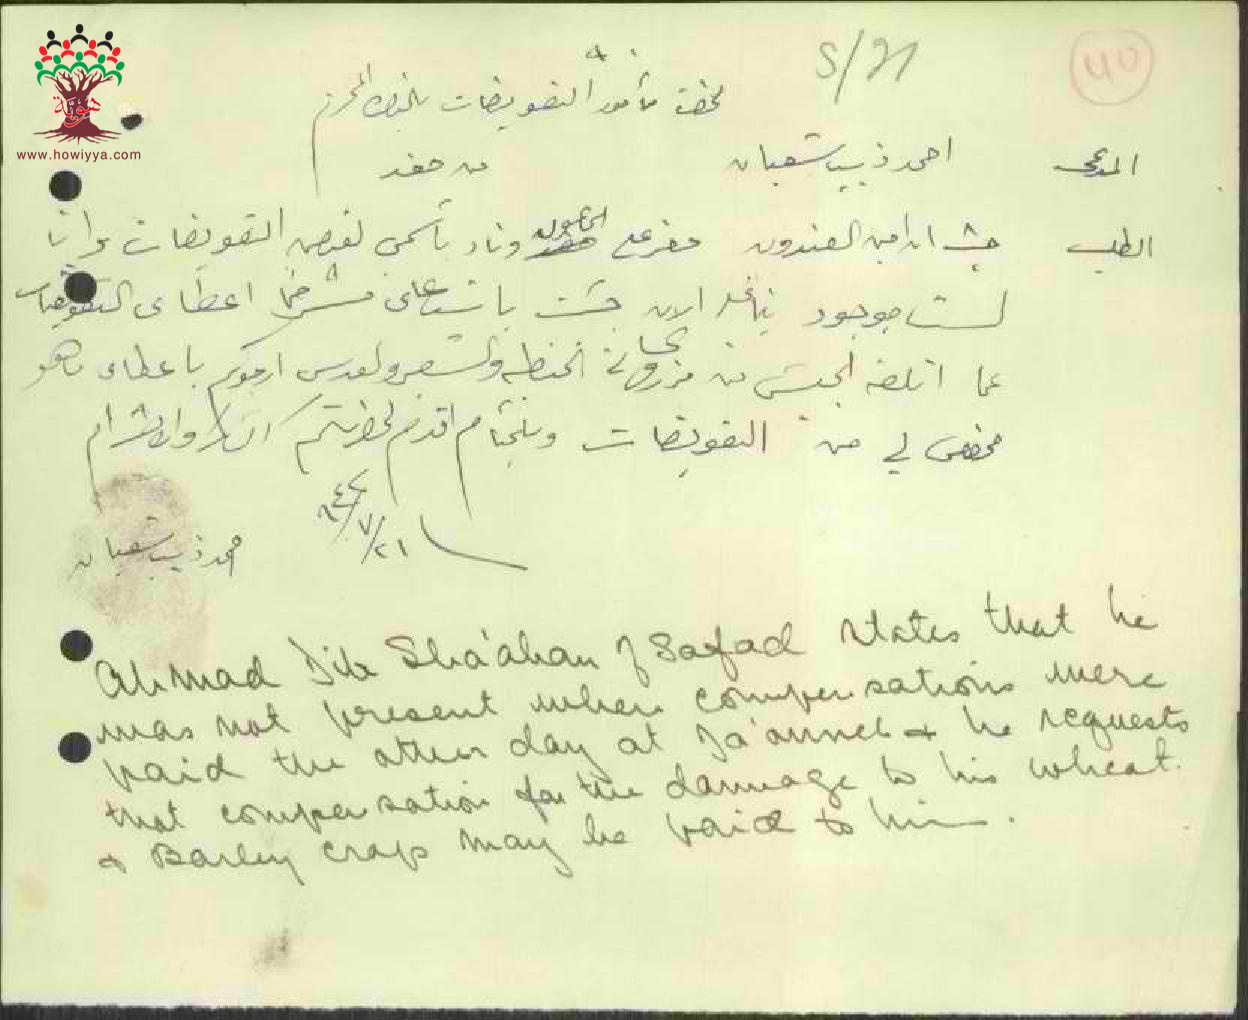 S/71
40
هوية
www.howiyya.com
لحضرت مأمور التعويضات بالجيش المحترم
المدعي احمد ذيب شعبان من صفد
الطلب حيث ان امين الصندوق حضر على الجاعونه وناد بأسمي لقبض التعويضات وانا
لست موجود الان جئت باستدعائي مسترحمًا اعطائي التعويضات
عما اتلفه الجيش من مزروعاتي الحنطه والشعير ارجوكم باعطائي ما هو
مخصص لي من التعويضات وبالختام اقدم لحضرتكم الشكر والاحترام
٢١/٧/٩٤٢
احمد ذيب شعبان
Ahmad Dib Sha'aban of Safad states that he
was not present when compensations were
paid the other day at Ja'auneh & he requests
that compensation for the damage to his wheat
& Barley crops may be paid to him.